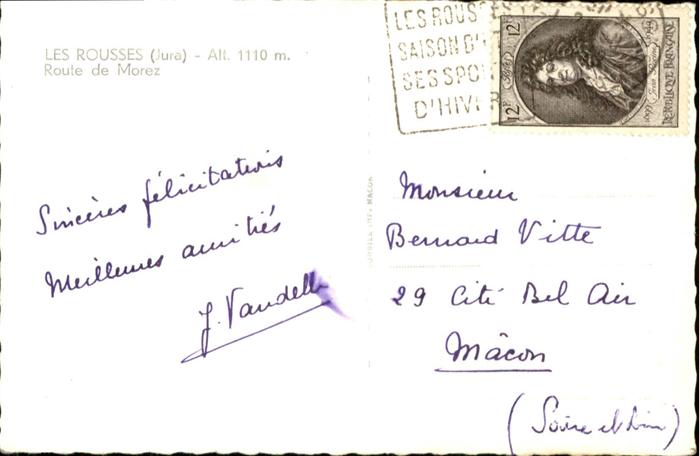 LES ROUSSES (Jura) - Alt. 1110 m.
Route de Morez
Sincères félicitations
Meilleures amitiés
J. Vandelle
LES ROUS
SAISON D'
SES SPO
D'HIVER
12F
12F
1699
1949
REPUBLIQUE FRANÇAISE
Monsieur
Bernard Vitte
29 Cité Bel Air
Mâcon
(Saône et Loire)